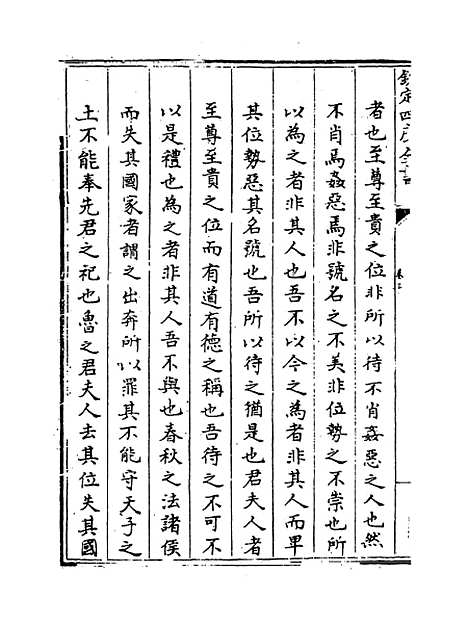 欽定四庫全書
卷上
者也至尊至貴之位非所以待不肖姦惡之人也然
不肖焉姦惡焉非號名之不美非位勢之不崇也所
以為之者非其人也吾不以今之為者非其人而卑
其位勢惡其名號也吾所以待之猶是也君夫人者
至尊至貴之位而有道有德之稱也吾待之不可不
以是禮也為之者非其人吾不與也春秋之法諸侯
而失其國家者謂之出奔所以罪其不能守天子之
土不能奉先君之祀也魯之君夫人去其位失其國